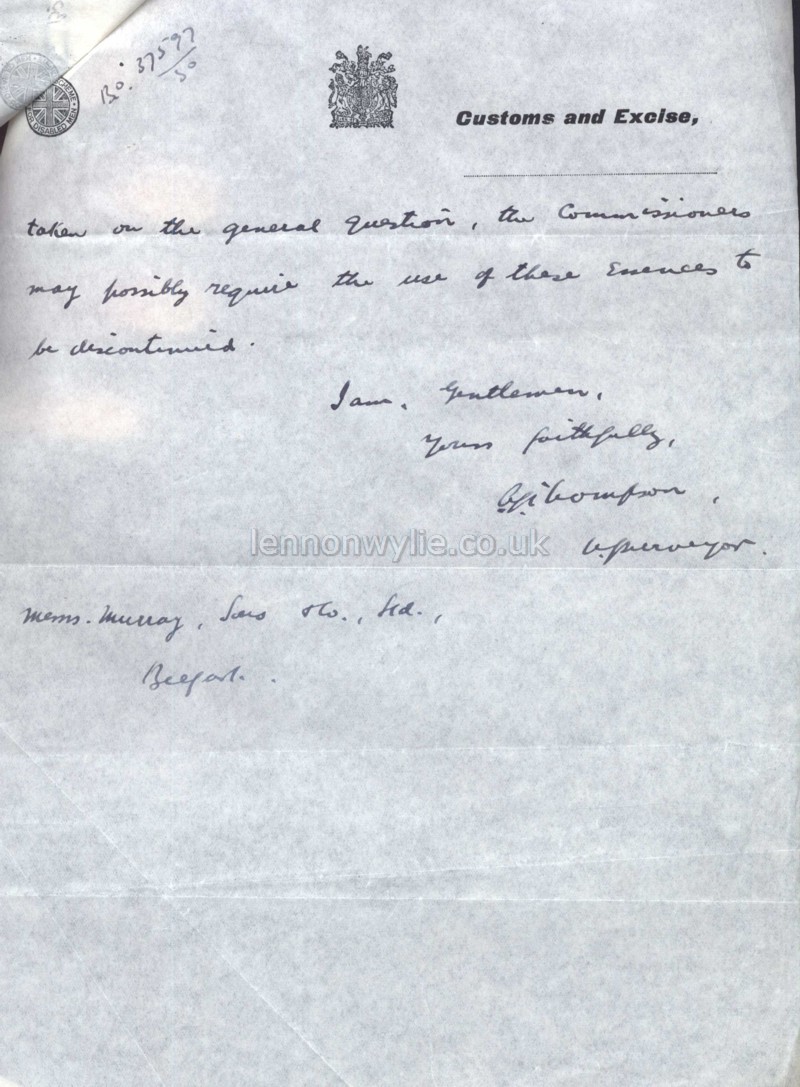 Bo. 37597/50
DISABLED MEN
Customs and Excise,
taken on the general question, the Commissioners
may possibly require the use of these Essences to
be discontinued.
I am, Gentlemen,
Yours faithfully,
Thompson,
Surveyor.
lennonwylie.co.uk
Messrs. Murray, Sons & Co., Ltd.,
Belfast.